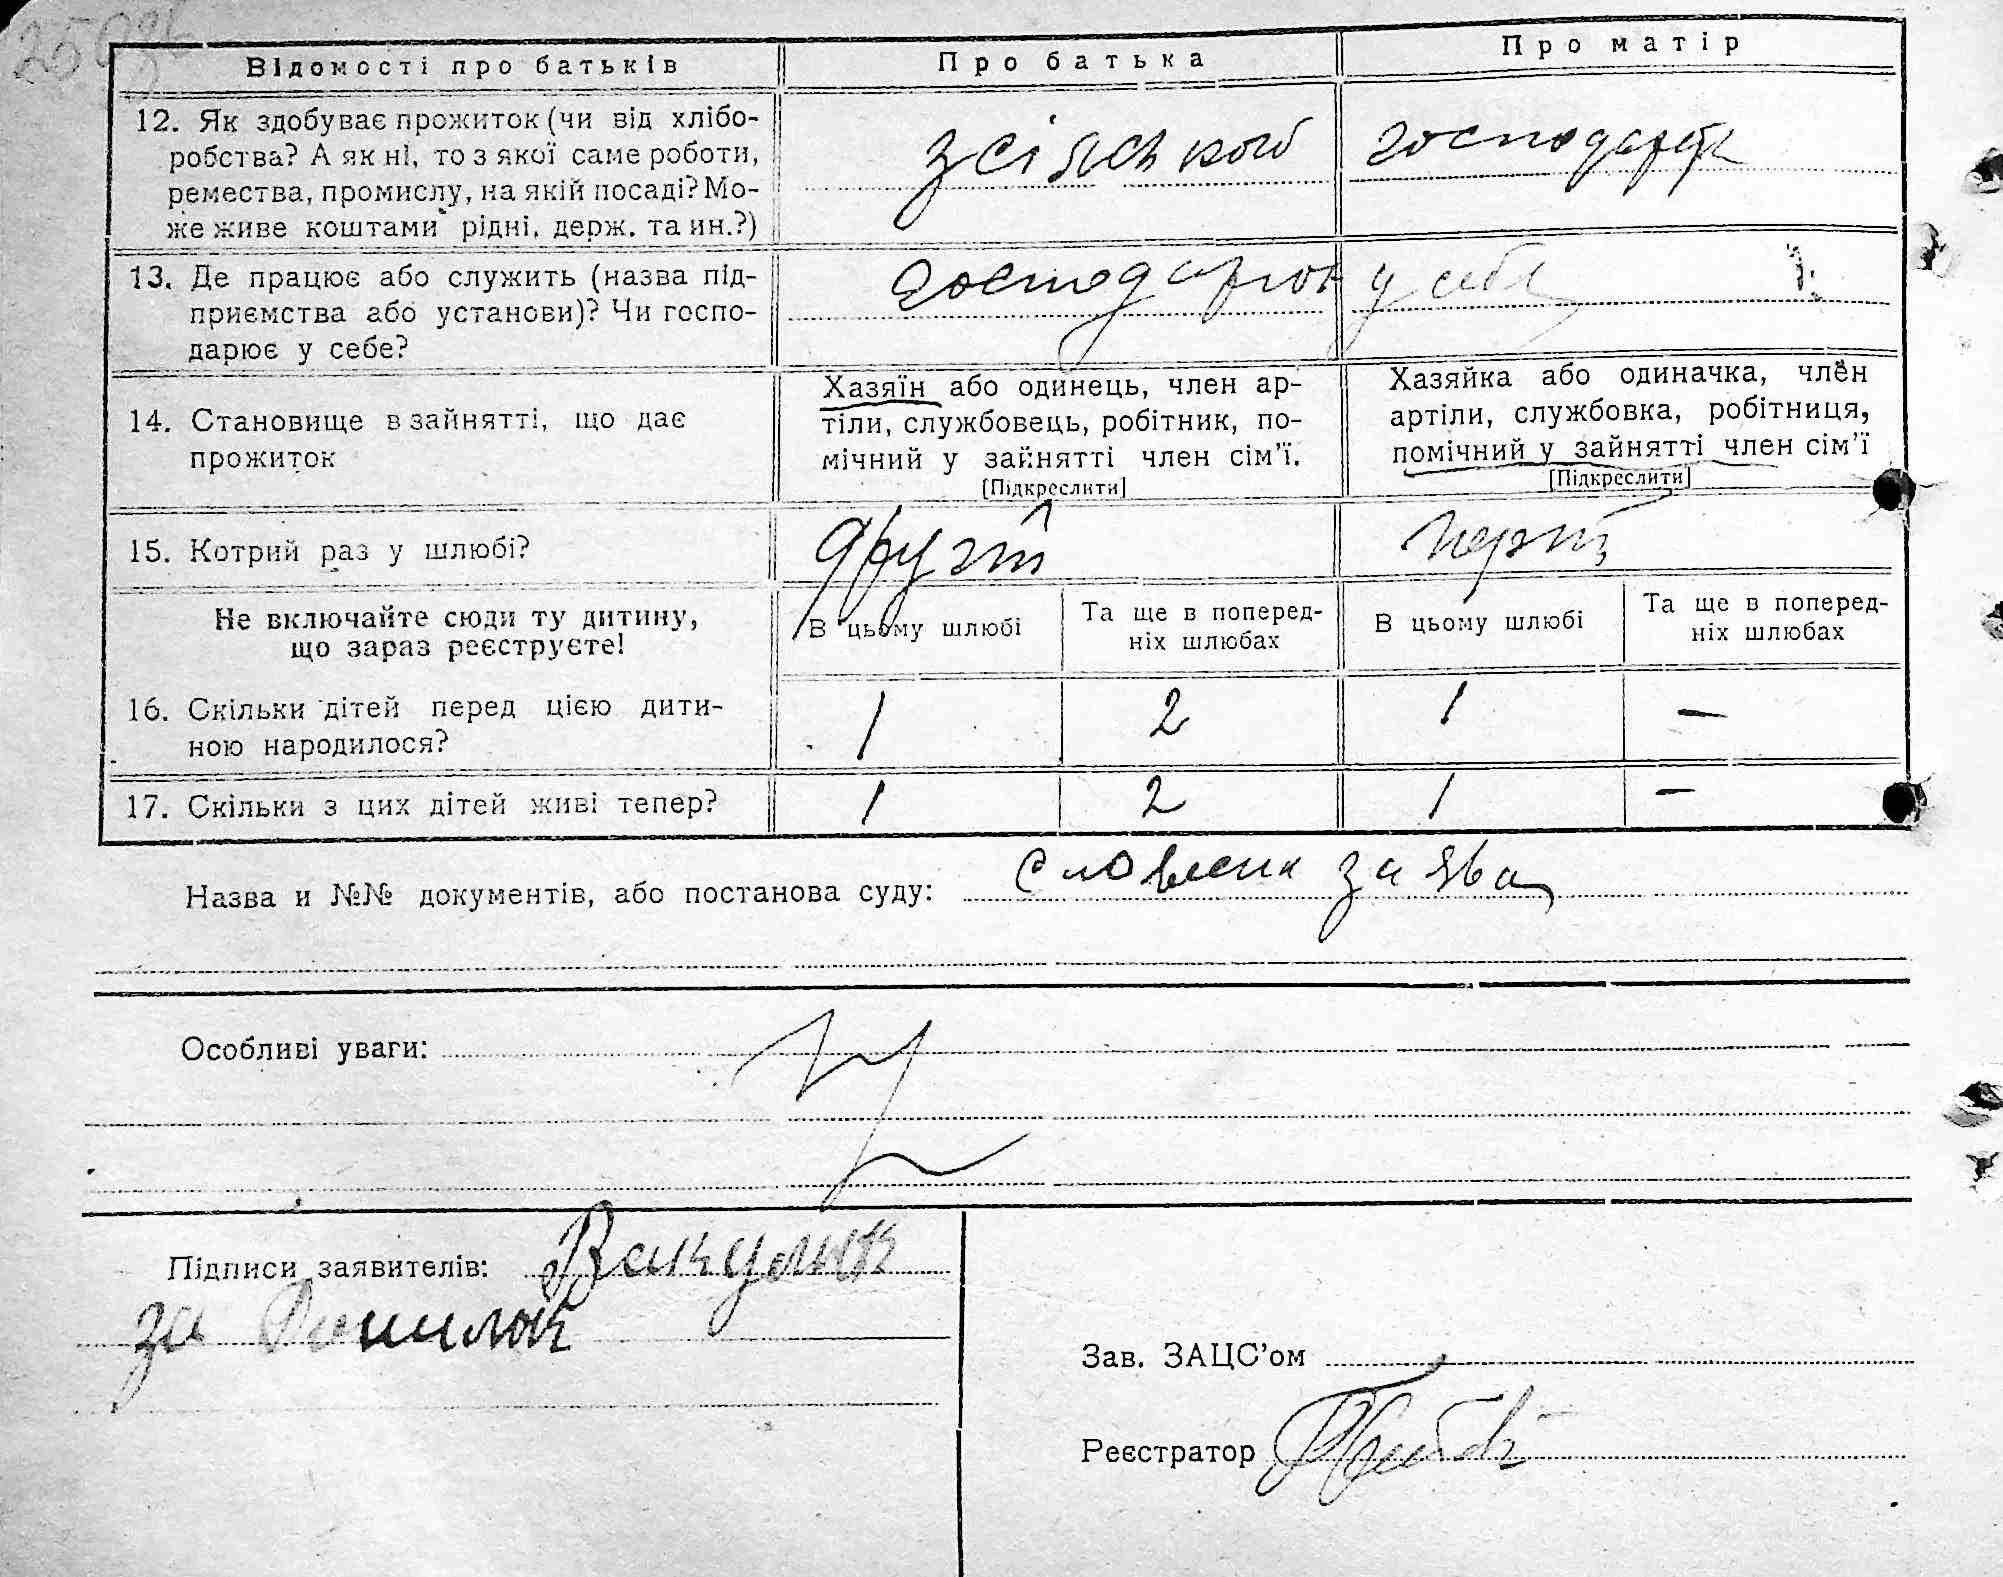 Відомості про батьків Про батька Про матір
12. Як здобуває прожиток (чи від хлібо-
робства? А як ні, то з якої саме роботи,
ремества, промислу, на якій посаді? Мо-
же живе коштами рідні, держ. та ин.?)
з сільського господарств
13. Де працює або служить (назва під-
приємства або установи)? Чи госпо-
дарює у себе?
господарює у себе
14. Становище в зайнятті, що дає
прожиток
Хазяїн або одинець, член ар-
тіли, службовець, робітник, по-
мічний у зайнятті член сім'ї.
[Підкреслити]
Хазяйка або одиначка, член
артіли, службовка, робітниця,
помічний у зайнятті член сім'ї
[Підкреслити]
15. Котрий раз у шлюбі? другий перший
Не включайте сюди ту дитину,
що зараз реєструєте!
В цьому шлюбі
Та ще в поперед-
ніх шлюбах
В цьому шлюбі
Та ще в поперед-
ніх шлюбах
16. Скільки дітей перед цією дити-
ною народилося?
1 2 1 —
17. Скільки з цих дітей живі тепер? 1 2 1 —
Назва и №№ документів, або постанова суду: словесна заява
Особливі уваги:
Підписи заявителів: Вакулюк
за
Зав. ЗАЦС'ом
Реєстратор